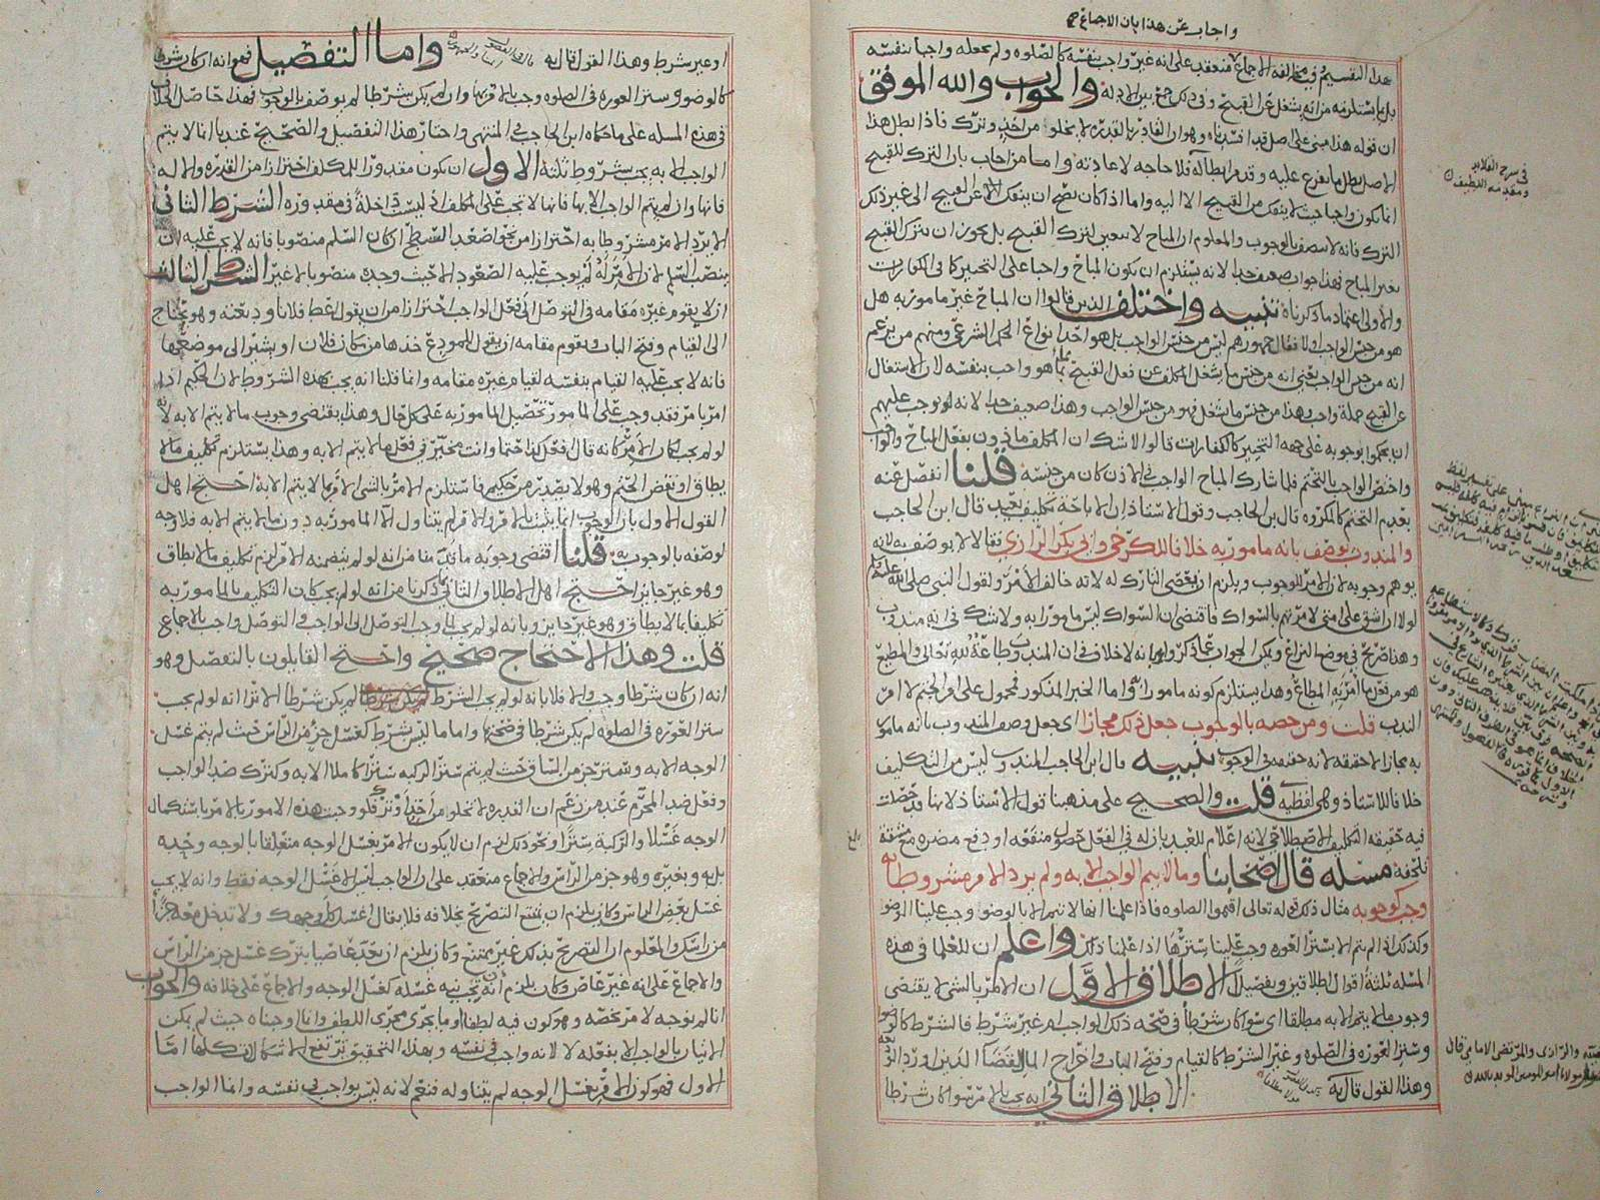 واجاب عن هذا بان الاجماع
هذا التقسيم ومخالفة الاجماع منعقد على انه غير واجب بنفسه كالصلوه ولم يجعله واجبا بنفسه
بل ما يستلزمه من انه يشغل عن القبيح وفي ذلك جمع بين الادلة والجواب والله الموفق
ان قوله هذا مبني على اصل قد افسدناه وهو ان القادر بالقدره لا يخلو من اخذ وترك فاذا بطل هذا
الاصل بطل ما يتفرع عليه وقد مر ابطاله فلا حاجه لاعادته واما من اجاب بان الترك للقبيح
انما يكون واجبا حيث لا ينفك من القبيح الا اليه واما اذا كان يصح ان ينفك عن القبيح الى غير ذلك
الترك فانه لا يتصف بالوجوب والمعلوم ان المباح لا يتعين لترك القبيح بل يجوز ان يترك القبيح
بغير المباح فهذا جواب ضعيف جدا لانه يستلزم ان يكون المباح واجبا على التخيير كما في الكفارات
والاولى اعتماد ما ذكرناه تنبيه واختلف الذين قالوا ان المباح غير مامور به هل
هو من جنس الواجب اولا فقال جمهورهم ليس من جنس الواجب بل هو احد انواع الحكم الشرعي ومنهم من زعم
انه من جنس الواجب يعني انه من جنس ما يشغل المكلف عن فعل القبيح مما هو واجب بنفسه لان الاشتغال
عن القبيح جملة واجب وهذا من جنس ما يشغل فهو من جنس الواجب وهذا ضعيف جدا لانه لو توجب عليهم
ان يحكموا بوجوبه على جهة التخيير كالكفارات قالوا لا شك ان المكلف ماذون بفعل المباح والواجب
واختص الواجب بالتحتم فلما شارك المباح الواجب في الاذن كان من جنسه قلنا انفصل عنه
بعدم التحتم كالمكروه قال ابن الحاجب وقول الاستاذ ان الاباحة تكليف بعيد قال ابن الحاجب
والمندوب يوصف بانه مامور به خلافا للكرخي وابي بكر الرازي فقالا لا يوصف به لانه
يوهم وجوبه لان الامر للوجوب ويلزم ان يعصي التارك له لانه خالف الامر ولقول النبي صلى الله عليه وسلم
لولا ان اشق على امتي لامرتهم بالسواك فاقتضى ان السواك ليس مامورا به ولا شك في انه مندوب
وهذا صريح في موضع النزاع ويمكن الجواب عما ذكروا بانه لا خلاف في ان المندوب طاعة لله تعالى والمطيع
هو من فعل ما امر به المطاع وهذا يستلزم كونه مامورا واما الخبر المذكور فمحمول على امر الحتم لا امر
الندب قلت ومن خصه بالوجوب جعل ذلك مجازا اي جعل وصف المندوب بانه مامور
به مجازا لا حقيقه لانه حقيقه في الوجوب تنبيه قال ابن الحاجب المندوب ليس من التكليف
خلافا للاستاذ وهي لفظيه قلت والصحيح على مذهبنا قول الاستاذ لانها قد حصلت
فيه حقيقه التكليف الاصطلاحي لانه اعلام للعبد بان له في الفعل حصول منفعه او دفع مضره مع مشقة
تلحقه مسئله قال اصحابنا وما لا يتم الواجب الا به ولم يرد الامر مشروطا به
وجب كوجوبه مثال ذلك قوله تعالى اقيموا الصلوه فاذا علمنا انها لا تتم الا بالوضوء وجب علينا الوضو
وكذلك اذا لم يتم الا بستر العوره وجب علينا سترها اذا علمنا ذلك واعلم ان للعلما في هذه
المسئله ثلثة اقوال اطلاقين وتفصيل الاطلاق الاول ان الامر بالشي لا يقتضي
وجوب ما لا يتم الا به مطلقا اي سوا كان شرطا في صحة ذلك الواجب ام غير شرط فالشرط كالوضوء
وستر العوره في الصلوه وغير الشرط كالقيام وفتح الباب واخراج المال لقضا الدين او رد الود
وهذا القول قال به الاطلاق الثاني انه يجب بالامر سوا كان شرطا
في شرح القلائد
ومقدمه اللطيف
او غير شرط وهذا القول قال به واما التفصيل فهو انه ان كان شرطا
كالوضو وستر العوره في الصلوه وجب بالامر بها وان لم يكن شرطا لم يوصف بالوجوب فهذا حاصل الخلاف
في هذه المسله على ما حكاه ابن الحاجب في المنتهى واختار هذا التفصيل والصحيح عندنا انما لا يتم
الواجب الا به يجب بشروط ثلثة الاول ان يكون مقدورا للمكلف احترازا من القدره والاله
فانها وان لم يتم الواجب الا بها فانها لا تجب على المكلف اذ ليست داخلة في مقدوره الشرط الثاني
الا يرد الامر مشروطا به احترازا من نحو اصعد السطح ان كان السلم منصوبا فانه لا يجب عليه ان
ينصب السلم لان الامر له لم يوجب عليه الصعود الا حيث وجده منصوبا لا غير الشرط الثالث
ان لا يقوم غيره مقامه في التوصل الى فعل الواجب احترازا من ان يقول اعط فلانا وديعته وهو يحتاج
الى القيام وفتح الباب ويقوم مقامه ان يقول للمودع خذها من مكان فلان او يشير الى موضعها
فانه لا يجب عليه القيام بنفسه لقيام غيره مقامه وانما قلنا انه يجب بهذه الشروط لان الحكيم اذا
امر بامر فقد وجب على المامور تحصيل المامور به على كل حال وهذا يقتضي وجوب ما لا يتم الا به لانه
لو لم يجب لكان الامر كانه قال افعل كذا حتما وانت مخير في فعل ما لا يتم الا به وهذا يستلزم تكليف ما لا
يطاق او نقض الحتم وهو لا يصدر من حكيم فاستلزم الامر بالشي الامر بما لا يتم الا به احتج اهل
القول الاول بان الوجوب انما يثبت بالامر والامر لم يتناول الا المامور به دون ما لا يتم الا به فلا وجه
لوصفه بالوجوب قلنا اقتضى وجوبه ما قدمنا من انه لو لم يتضمنه الامر لزم تكليف ما لا يطاق
وهو غير جايز احتج اهل الاطلاق الثاني بما ذكرنا من انه لو لم يجب لكان التكليف بالمامور به
تكليفا بما لا يطاق وهو غير جايز وبانه لو لم يجب لما وجب التوصل الى الواجب والتوصل واجب بالاجماع
قلت وهذا الاحتجاج صحيح واحتج القايلون بالتفصيل وهو
انه ان كان شرطا وجب والا فلا بانه لو لم يجب الشرط لم يكن شرطا الا ترى انه لو لم يجب
ستر العوره في الصلوه لم يكن شرطا في صحتها واما ما ليس بشرط كغسل جزء من الراس حيث لم يتم غسل
الوجه الا به وستر جزء من الساق حيث لم يتم ستر الركبه سترا كاملا الا به وكترك ضد الواجب
وفعل ضد المحرم عند من زعم ان القدره لا تخلو من اخذ او ترك فلو وجبت هذه الامور بالامر باستكمال
الوجه غسلا والركبة سترا ونحو ذلك لزم ان لا يكون الامر بغسل الوجه متعلقا بالوجه وحده
بل به وبغيره وهو جزء من الراس والاجماع منعقد على ان الواجب ليس الا غسل الوجه فقط وانه لا يجب
غسل بعض الراس وكان يلزم ان يمتنع التصريح بخلافه فلا يقال اغسل كل وجهك ولا تدخل معه جزأ
من راسك والمعلوم ان التصريح بذلك غير ممتنع وكان يلزم ان يعد عاصيا بترك غسل جزء من الراس
والاجماع على انه غير عاص وكان يلزم ان تجب نيه غسله كغسل الوجه والاجماع على خلافه والجواب
انا لم نوجبه لامر يخصه وهو كون فيه لطفا او ما يجري مجرى اللطف وانما اوجبناه حيث لم يمكن
الاتيان بالواجب الا بفعله لا لانه واجب في نفسه وبهذا التحقيق ترتفع الاشكالات كلها اما
الاول فهو كون الامر بغسل الوجه لم يتناوله فنعم لانه ليس بواجب في نفسه وانما الواجب